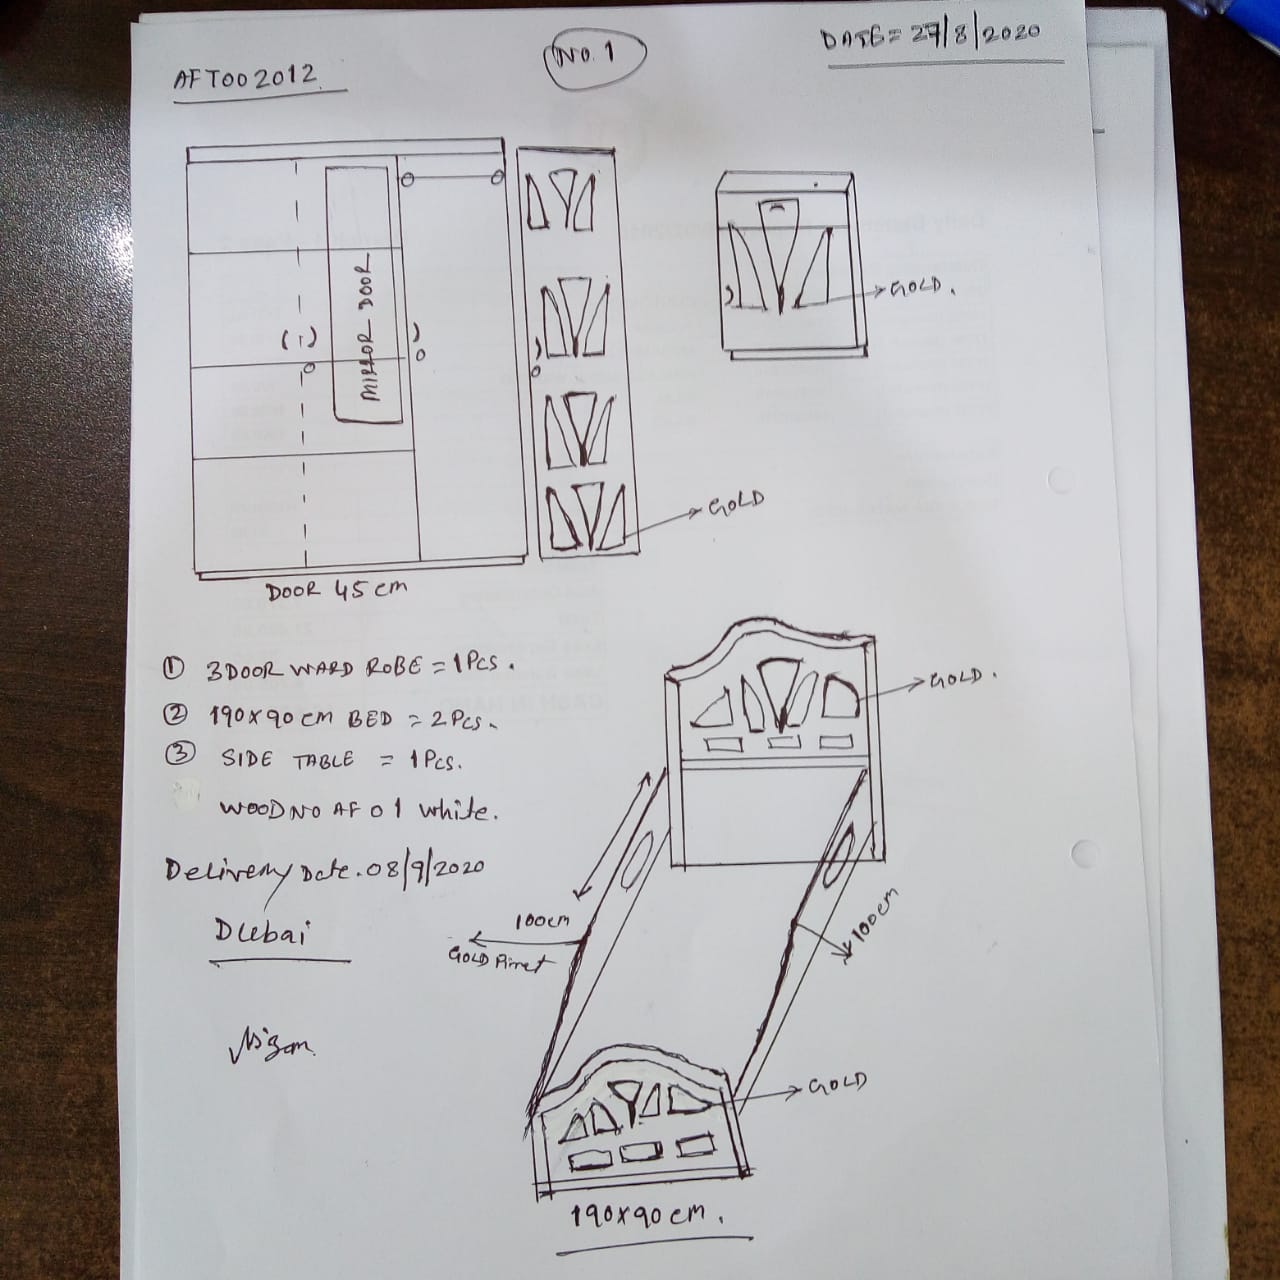 AFT002012
No. 1
DATE= 27/8/2020
MIRROR DOOR
GOLD.
GOLD
DOOR 45 cm
① 3 DOOR WARD ROBE = 1 Pcs.
② 190x90 cm BED = 2 Pcs.
③ SIDE TABLE = 1 Pcs.
WOOD NO AF 01 white.
Delivery Date. 08/9/2020
Dubai
Nizam
GOLD.
100cm
GOLD
100cm
GOLD
190x90 cm.